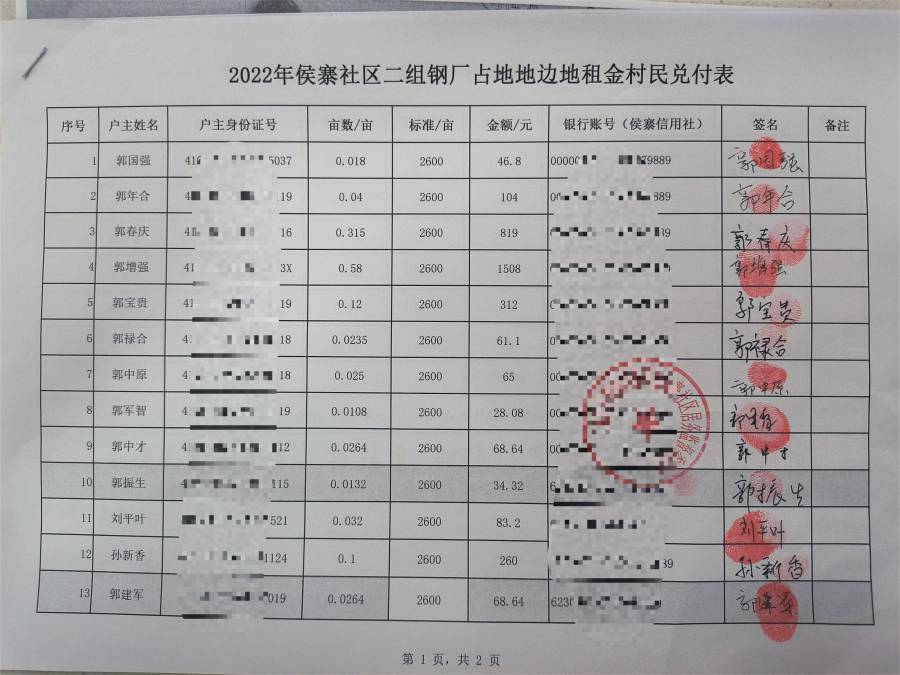 2022年侯寨社区二组钢厂占地地边地租金村民兑付表
序号 户主姓名 户主身份证号 亩数/亩 标准/亩 金额/元 银行账号（侯寨信用社） 签名 备注
1 郭国强 41 5037 0.018 2600 46.8 00000 79889 郭国强
2 郭年合 4 119 0.04 2600 104 00 889 郭年合
3 郭春庆 41 16 0.315 2600 819 0 89 郭春庆
4 郭增强 41 3X 0.58 2600 1508 0 郭增强
5 郭宝贵 4 19 0.12 2600 312 0 郭宝贵
6 郭禄合 41 18 0.0235 2600 61.1 0 郭禄合
7 郭中原 41 18 0.025 2600 65 00 郭中原
8 郭军智 41 19 0.0108 2600 28.08 00 郭军智
9 郭中才 41 12 0.0264 2600 68.64 00 郭中才
10 郭振生 4 115 0.0132 2600 34.32 6 郭振生
11 刘平叶 521 0.032 2600 83.2 刘平叶
12 孙新香 4 1124 0.1 2600 260 89 孙新香
13 郭建军 019 0.0264 2600 68.64 623 郭建军
社区居务监督委
第 1 页，共 2 页